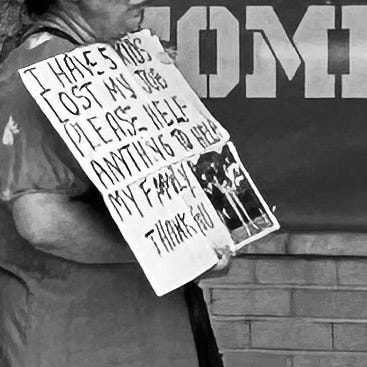 I HAVE 5 KIDS
LOST MY JOB
PLEASE HELP
ANYTHING TO HELP
MY FAMILY
THANK YOU
OM